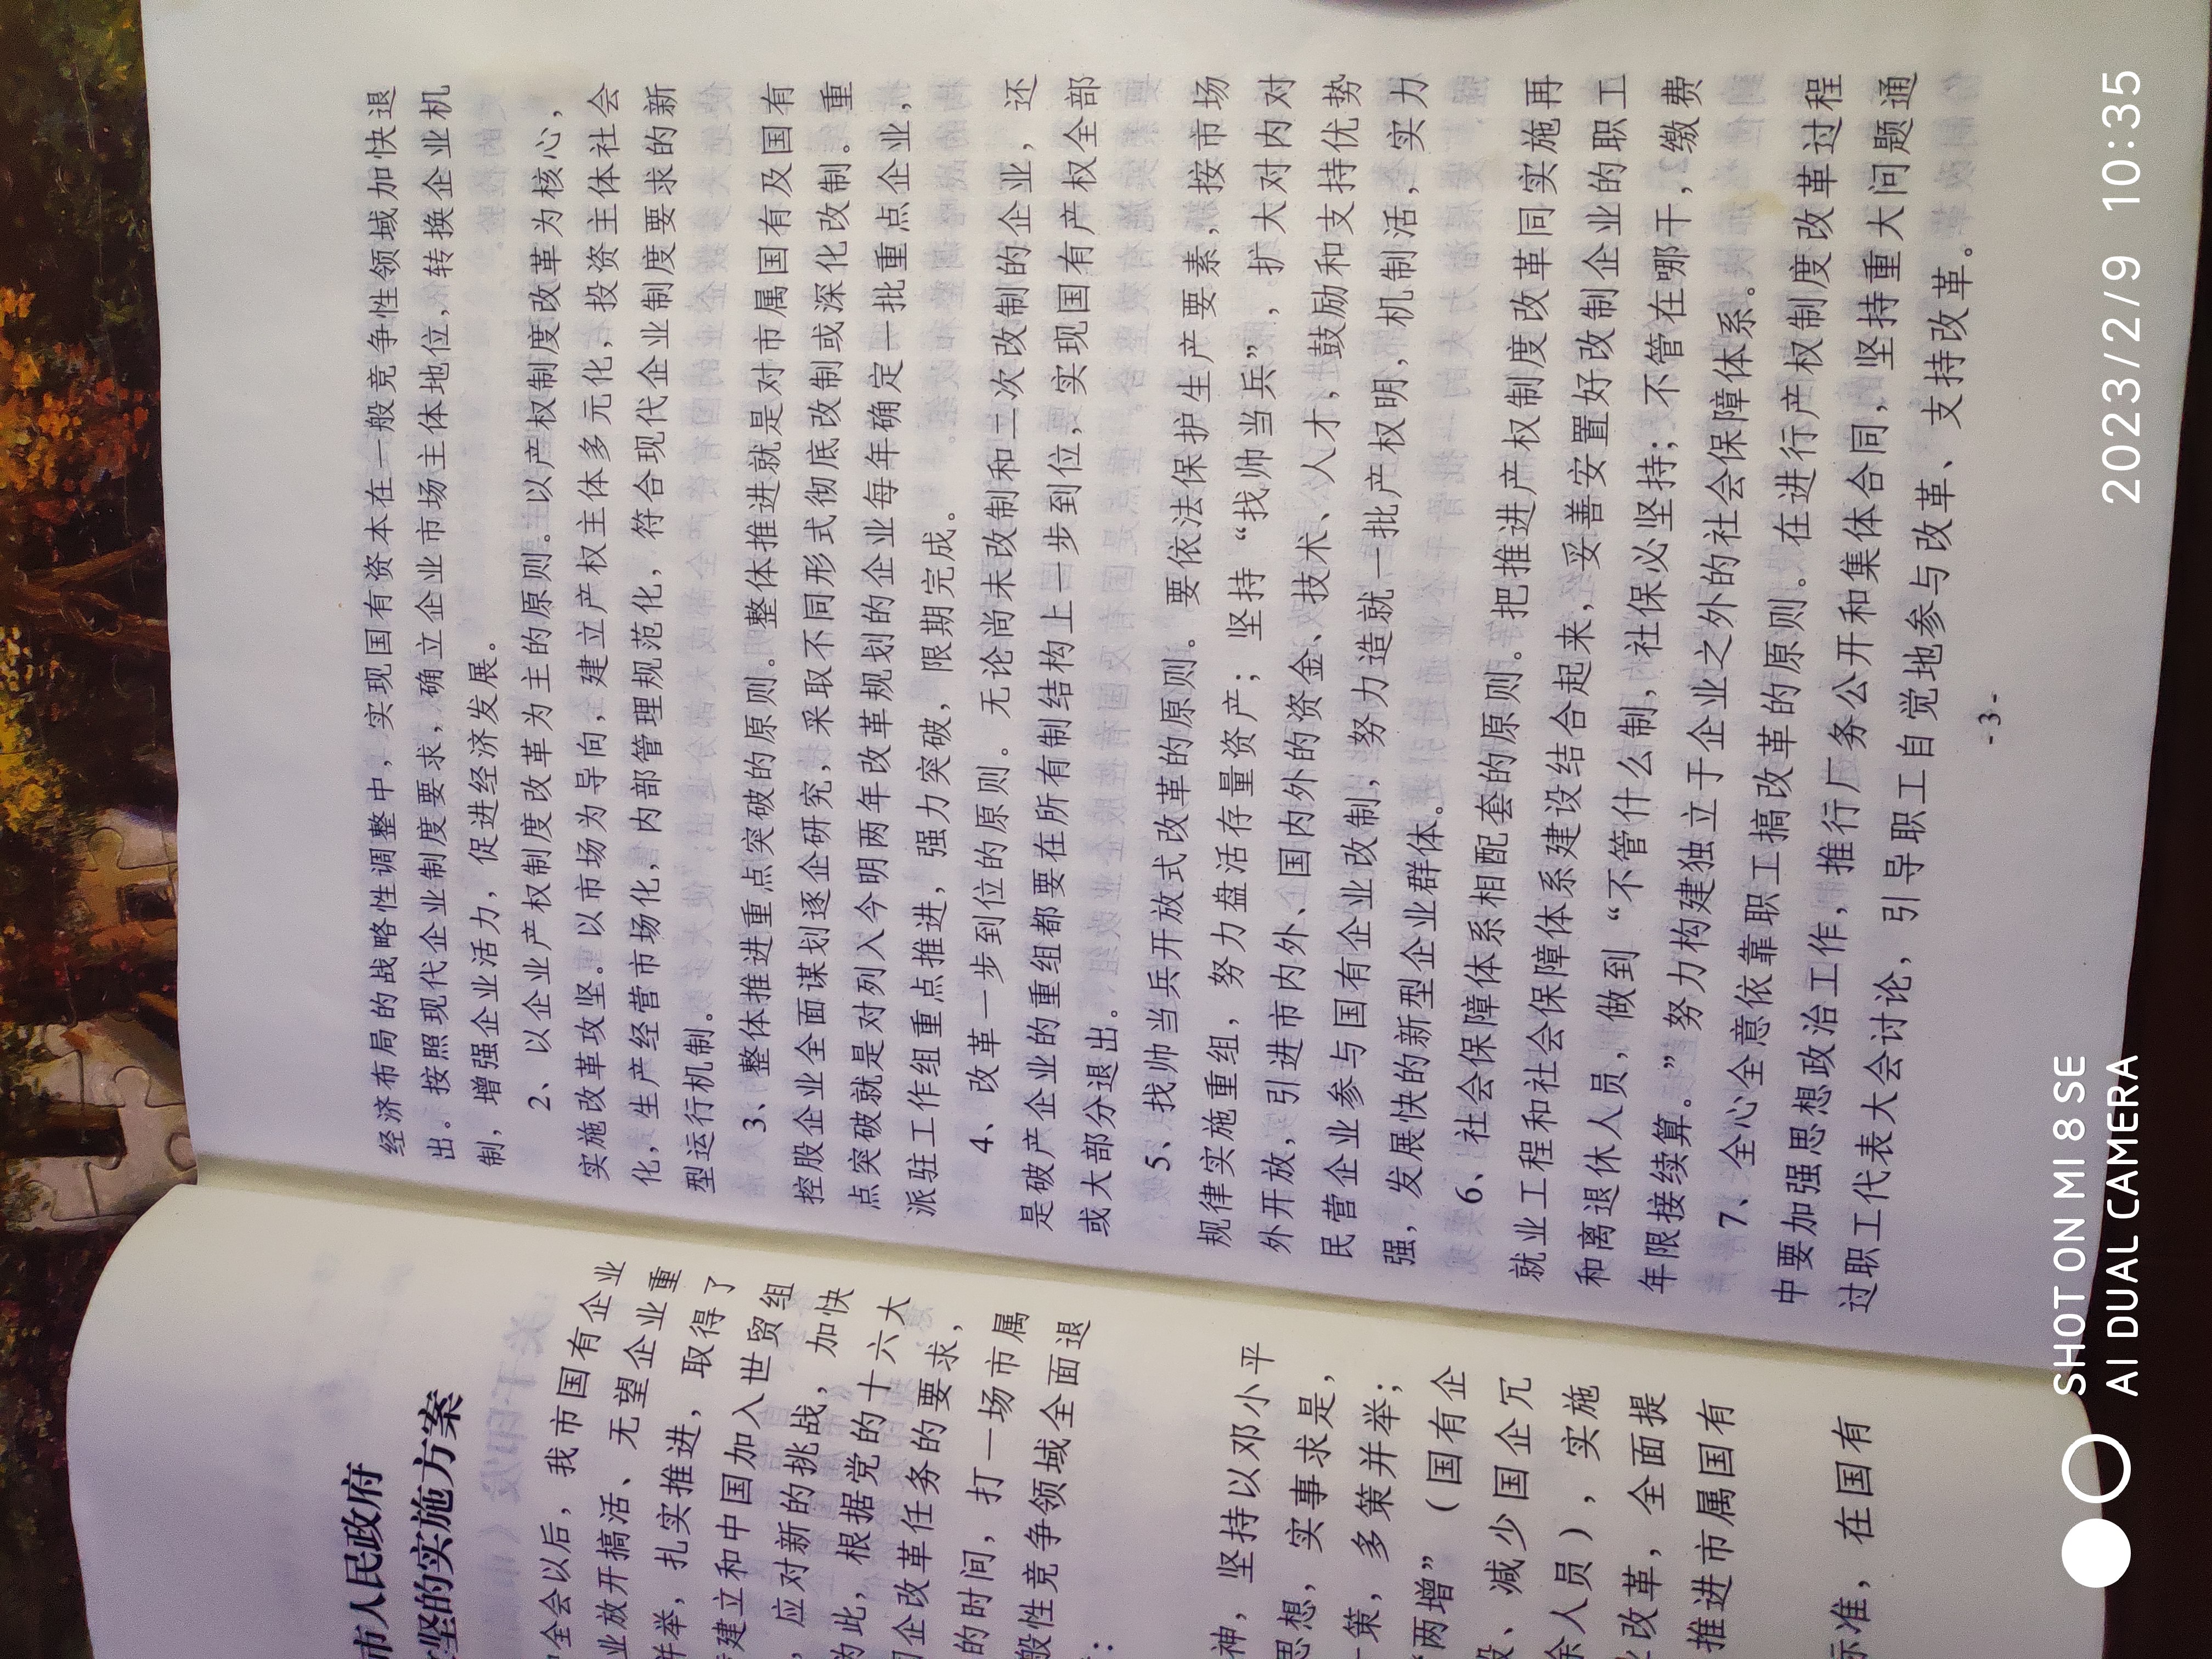 市人民政府
坚的实施方案
全会以后，我市国有企业
业放开搞活、无望企业重
并举，扎实推进，取得了
建立和中国加入世贸组
，应对新的挑战，加快
为此，根据党的十六大
国企改革任务的要求，
的时间，打一场市属
般性竞争领域全面退
：
神，坚持以邓小平
思想，实事求是，
策，多策并举；
“两增”（国有企
、减少国企冗
余人员），实施
改革，全面提
推进市属国有
标准，在国有
经济布局的战略性调整中，实现国有资本在一般竞争性领域加快退
出。按照现代企业制度要求，确立企业市场主体地位，转换企业机
制，增强企业活力，促进经济发展。
2、以企业产权制度改革为主的原则。以产权制度改革为核心，
实施改革攻坚。以市场为导向，建立产权主体多元化，投资主体社会
化，生产经营市场化，内部管理规范化，符合现代企业制度要求的新
型运行机制。
3、整体推进重点突破的原则。整体推进就是对市属国有及国有
控股企业全面谋划逐企研究，采取不同形式彻底改制或深化改制。重
点突破就是对列入今明两年改革规划的企业每年确定一批重点企业，
派驻工作组重点推进，强力突破，限期完成。
4、改革一步到位的原则。无论尚未改制和二次改制的企业，还
是破产企业的重组都要在所有制结构上一步到位，实现国有产权全部
或大部分退出。
5、找帅当兵开放式改革的原则。要依法保护生产要素，按市场
规律实施重组，努力盘活存量资产；坚持“找帅当兵”，扩大对内对
外开放，引进市内外、国内外的资金、技术、人才，鼓励和支持优势
民营企业参与国有企业改制，努力造就一批产权明，机制活，实力
强，发展快的新型企业群体。
6、社会保障体系相配套的原则。把推进产权制度改革同实施再
就业工程和社会保障体系建设结合起来，妥善安置好改制企业的职工
和离退休人员，做到“不管什么制，社保必坚持；不管在哪干，缴费
年限接续算。”努力构建独立于企业之外的社会保障体系。
7、全心全意依靠职工搞改革的原则。在进行产权制度改革过程
中要加强思想政治工作，推行厂务公开和集体合同，坚持重大问题通
过职工代表大会讨论，引导职工自觉地参与改革、支持改革。
-3-
SHOT ON MI 8 SE
AI DUAL CAMERA
2023/2/9 10:35